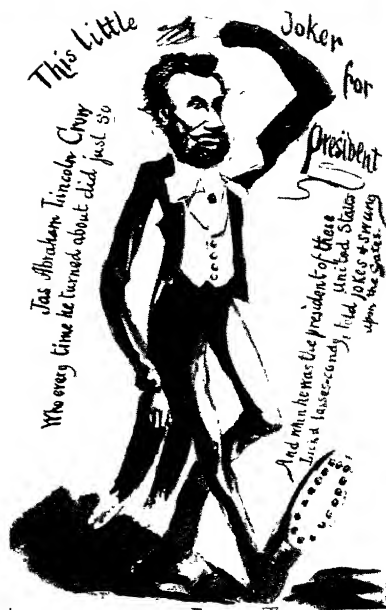 This Little Joker for President
Jas Abraham Lincoln Crow
Who every time he turned about did just so
And when he was the president of these
United States
lasses-candy, told jokes & swung
upon the gates.